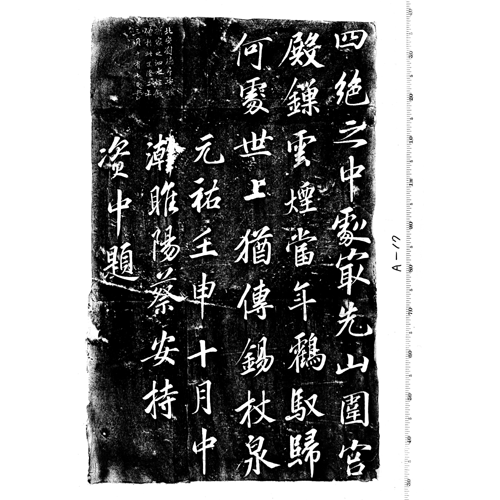 四絶之中處冣先山圍宮
殿鏁雲煙當年鸖馭歸
何處世上猶傳錫杖泉
元祐壬申十月中
澣睢陽蔡安持
資中題
A-17